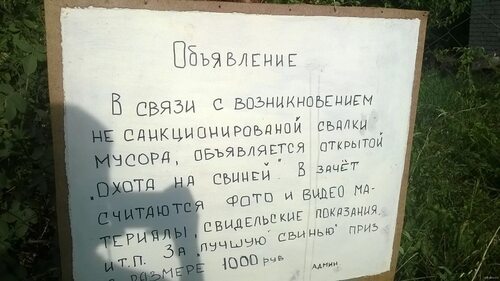 Объявление
В связи с возникновением
не санкционированой свалки
мусора, объявляется открытой
"Охота на свиней". В зачёт
считаются фото и видео ма-
териалы, свидельские показания
и т.п. За "лучшую свинью" приз
в размере 1000 руб админ